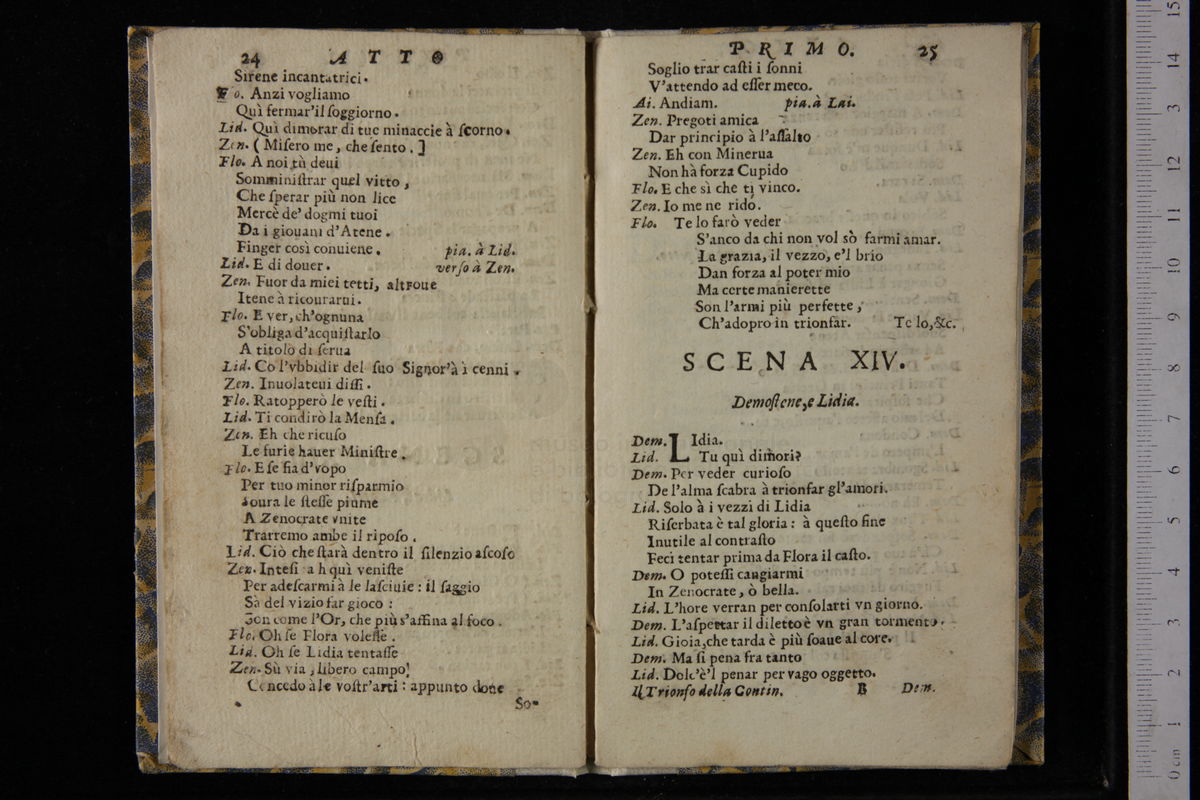 24 ATTO
Sirene incantatrici.
Fo. Anzi vogliamo
Quì fermar'il ſoggiorno.
Lid. Quì dimorar di tue minaccie à ſcorno.
Zen. (Miſero me, che ſento.]
Flo. A noi tù deui
Somminiſtrar quel vitto,
Che ſperar più non lice
Mercè de' dogmi tuoi
Da i giouani d'Atene.
Finger così conuiene. pia. à Lid.
Lid. E di douer. verſo à Zen.
Zen. Fuor da miei tetti, altroue
Itene à ricourarui.
Flo. E ver, ch'ognuna
S'obliga d'acquiſtarlo
A titolo di ſerua
Lid. Co l'vbbidir del ſuo Signor'à i cenni.
Zen. Inuolateui diſſi.
Flo. Ratopperò le veſti.
Lid. Ti condirò la Menſa.
Zen. Eh che ricuſo
Le furie hauer Miniſtre.
Flo. E ſe fia d'vopo
Per tuo minor riſparmio
Soura le ſteſſe piume
A Zenocrate vnite
Trarremo ambe il ripoſo.
Lid. Ciò che ſtarà dentro il ſilenzio aſcoſo
Zen. Inteſi a h quì veniſte
Per adeſcarmi à le laſciuie : il ſaggio
Sà del vizio far gioco :
Son come l'Or, che più s'affina al foco.
Flo. Oh ſe Flora voleſſe.
Lid. Oh ſe Lidia tentaſſe
Zen. Sù via, libero campo!
Concedo à le voſtr'arti : appunto done
So-
PRIMO. 25
Soglio trar caſti i ſonni
V'attendo ad eſſer meco.
Ai. Andiam. pia. à Lai.
Zen. Pregoti amica
Dar principio à l'aſſalto
Zen. Eh con Minerua
Non hà forza Cupido
Flo. E che sì che ti vinco.
Zen. Io me ne rido.
Flo. Te lo farò veder
S'anco da chi non vol sò farmi amar.
La grazia, il vezzo, e'l brio
Dan forza al poter mio
Ma certe manierette
Son l'armi più perfette,
Ch'adopro in trionfar. Te lo, &c.
SCENA XIV.
Demoſtene, e Lidia.
Dem. LIdia.
Lid. Tu quì dimori?
Dem. Per veder curioſo
De l'alma ſcabra à trionfar gl'amori.
Lid. Solo à i vezzi di Lidia
Riſerbata è tal gloria : à queſto fine
Inutile al contraſto
Feci tentar prima da Flora il caſto.
Dem. O poteſſi cangiarmi
In Zenocrate, ò bella.
Lid. L'hore verran per conſolarti vn giorno.
Dem. L'aſpettar il diletto è vn gran tormento.
Lid. Gioia, che tarda è più ſoaue al core.
Dem. Ma ſi pena fra tanto
Lid. Dolc'è'l penar per vago oggetto.
Il Trionfo della Contin. B Dem.